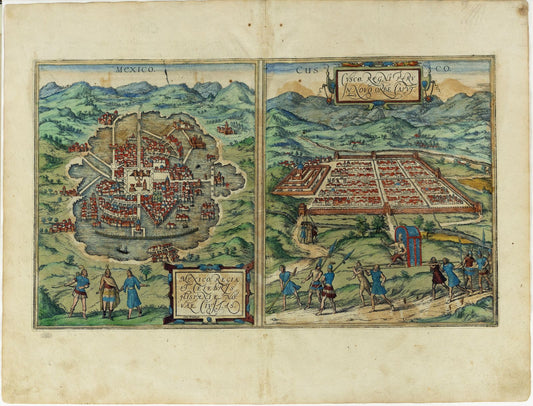 MEXICO.
CUS
CO.
CUSCO, REGNI PERV
IN NOVO ORBE CAPVT.
MEXICO, REGIA
ET CELEBRIS
HISPANIÆ NO:
VAE CIVITAS